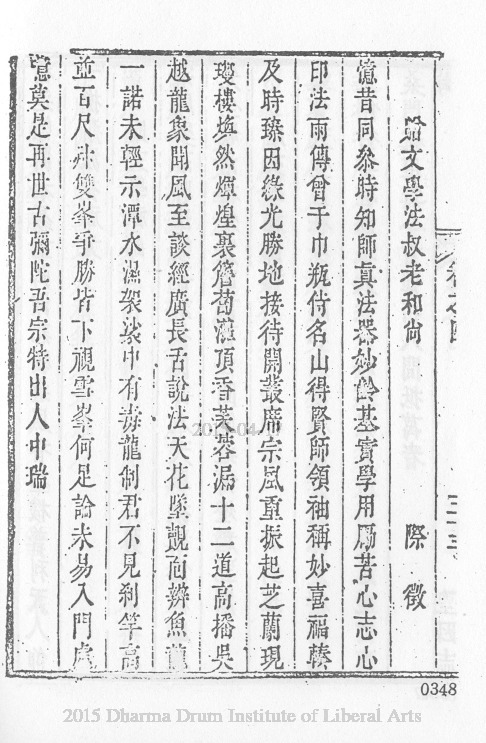 卷之四 三十三
貽文學法叔老和尚 際徵
憶昔同參時知師真法器妙齡基實學用勵苦心志心
印法雨傳曾于巾瓶侍名山得賢師領袖稱妙喜福轃
及時臻因緣光勝地接待開叢席宗風重振起芝蘭現
瓊樓煥然燦煌裏簷蔔薩頂香芙蓉漏十二道高播吳
越龍象聞風至談經廣長舌說法天花墜覿面辨魚龍
一諾未輕示潭水濕袈裟中有毒龍制君不見剎竿高
並百尺舟雙峯爭勝皆下視雪峯何足論未易入門處
噫莫是再世古彌陀吾宗特出人中瑞
0348
2015 Dharma Drum Institute of Liberal Arts